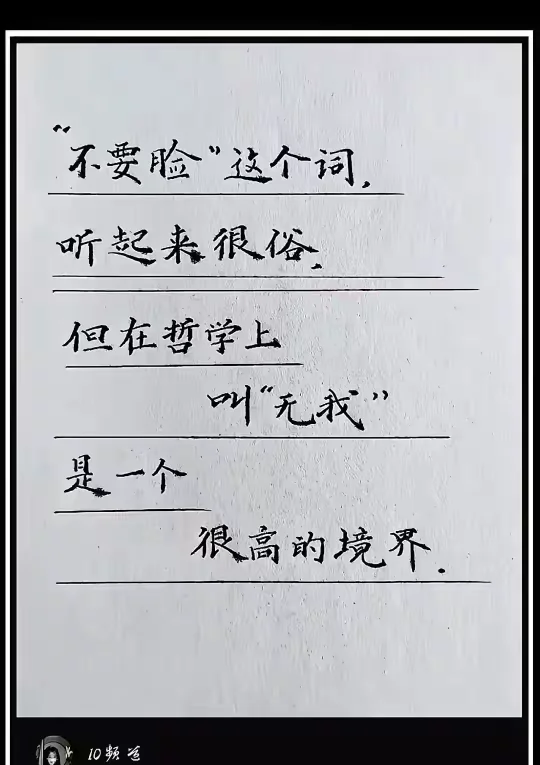 “不要脸”这个词,
听起来很俗,
但在哲学上
叫“无我”
是一个
很高的境界.
10频道